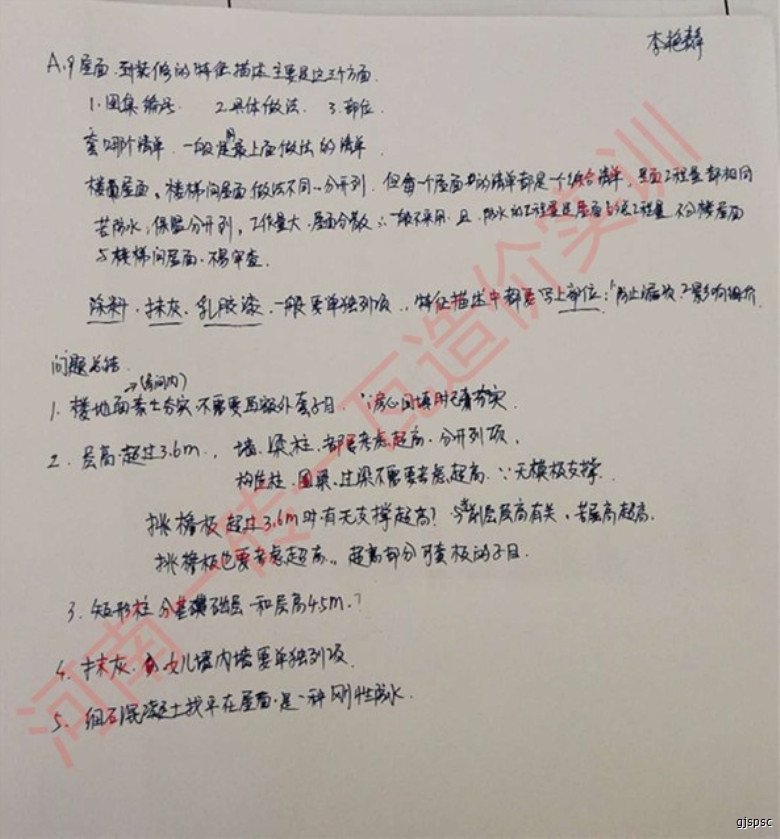 李艳静
A.9屋面.到装修的特征描述主要是这三个方面.
1.图集编号. 2.具体做法. 3.部位.
套哪个清单.一般是用最上面做法的清单.
楼屋面,楼梯间屋面做法不同,分开列.但每一个屋面的清单都是一个综合清单,且工程量都相同
若防水,保温分开列,工作量大.屋面分散∴一般不采用.且.防水的工程量是屋面的总工程量.不分楼屋面
与楼梯间屋面.不易审查.
涂料.抹灰.乳胶漆.一般要单独列项.,特征描述中都要写上部位:1防止漏项.2影响组价.
问题总结.
→(房间内)
1.楼地面素土夯实.不需要再额外套子目.∵房心回填时已有夯实.
2.层高.超过3.6m.,墙.梁.柱.都要考虑超高.分开列项.
构造柱.圈梁.过梁不需要考虑超高.∵无模板支撑.
挑檐板超过3.6m时.有无支撑超高?与层高有关,若层高超高.
挑檐板也要考虑超高..超高部分可套板的子目.
3.矩形柱分基础层和层高4.5m.?
4.抹灰.女儿墙内墙要单独列项.
5.细石混凝土找平在屋面.是一种刚性防水.
河南一砖一瓦造价实训
gjspsc